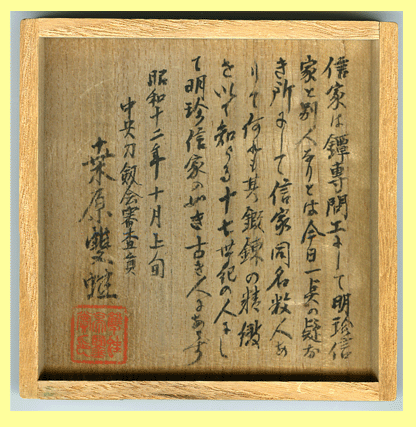 信家は鐔専問工にして明珍信
家と別人なりとは今日一点の疑な
き所にして信家同名数人あ
りて何れも其鍛錬の精緻
を以て知らる十七世紀の人にし
て明珍信家の如き古き人にあらず
昭和十二年十月上旬
中央刀剣会審査員
桑原雙蛙